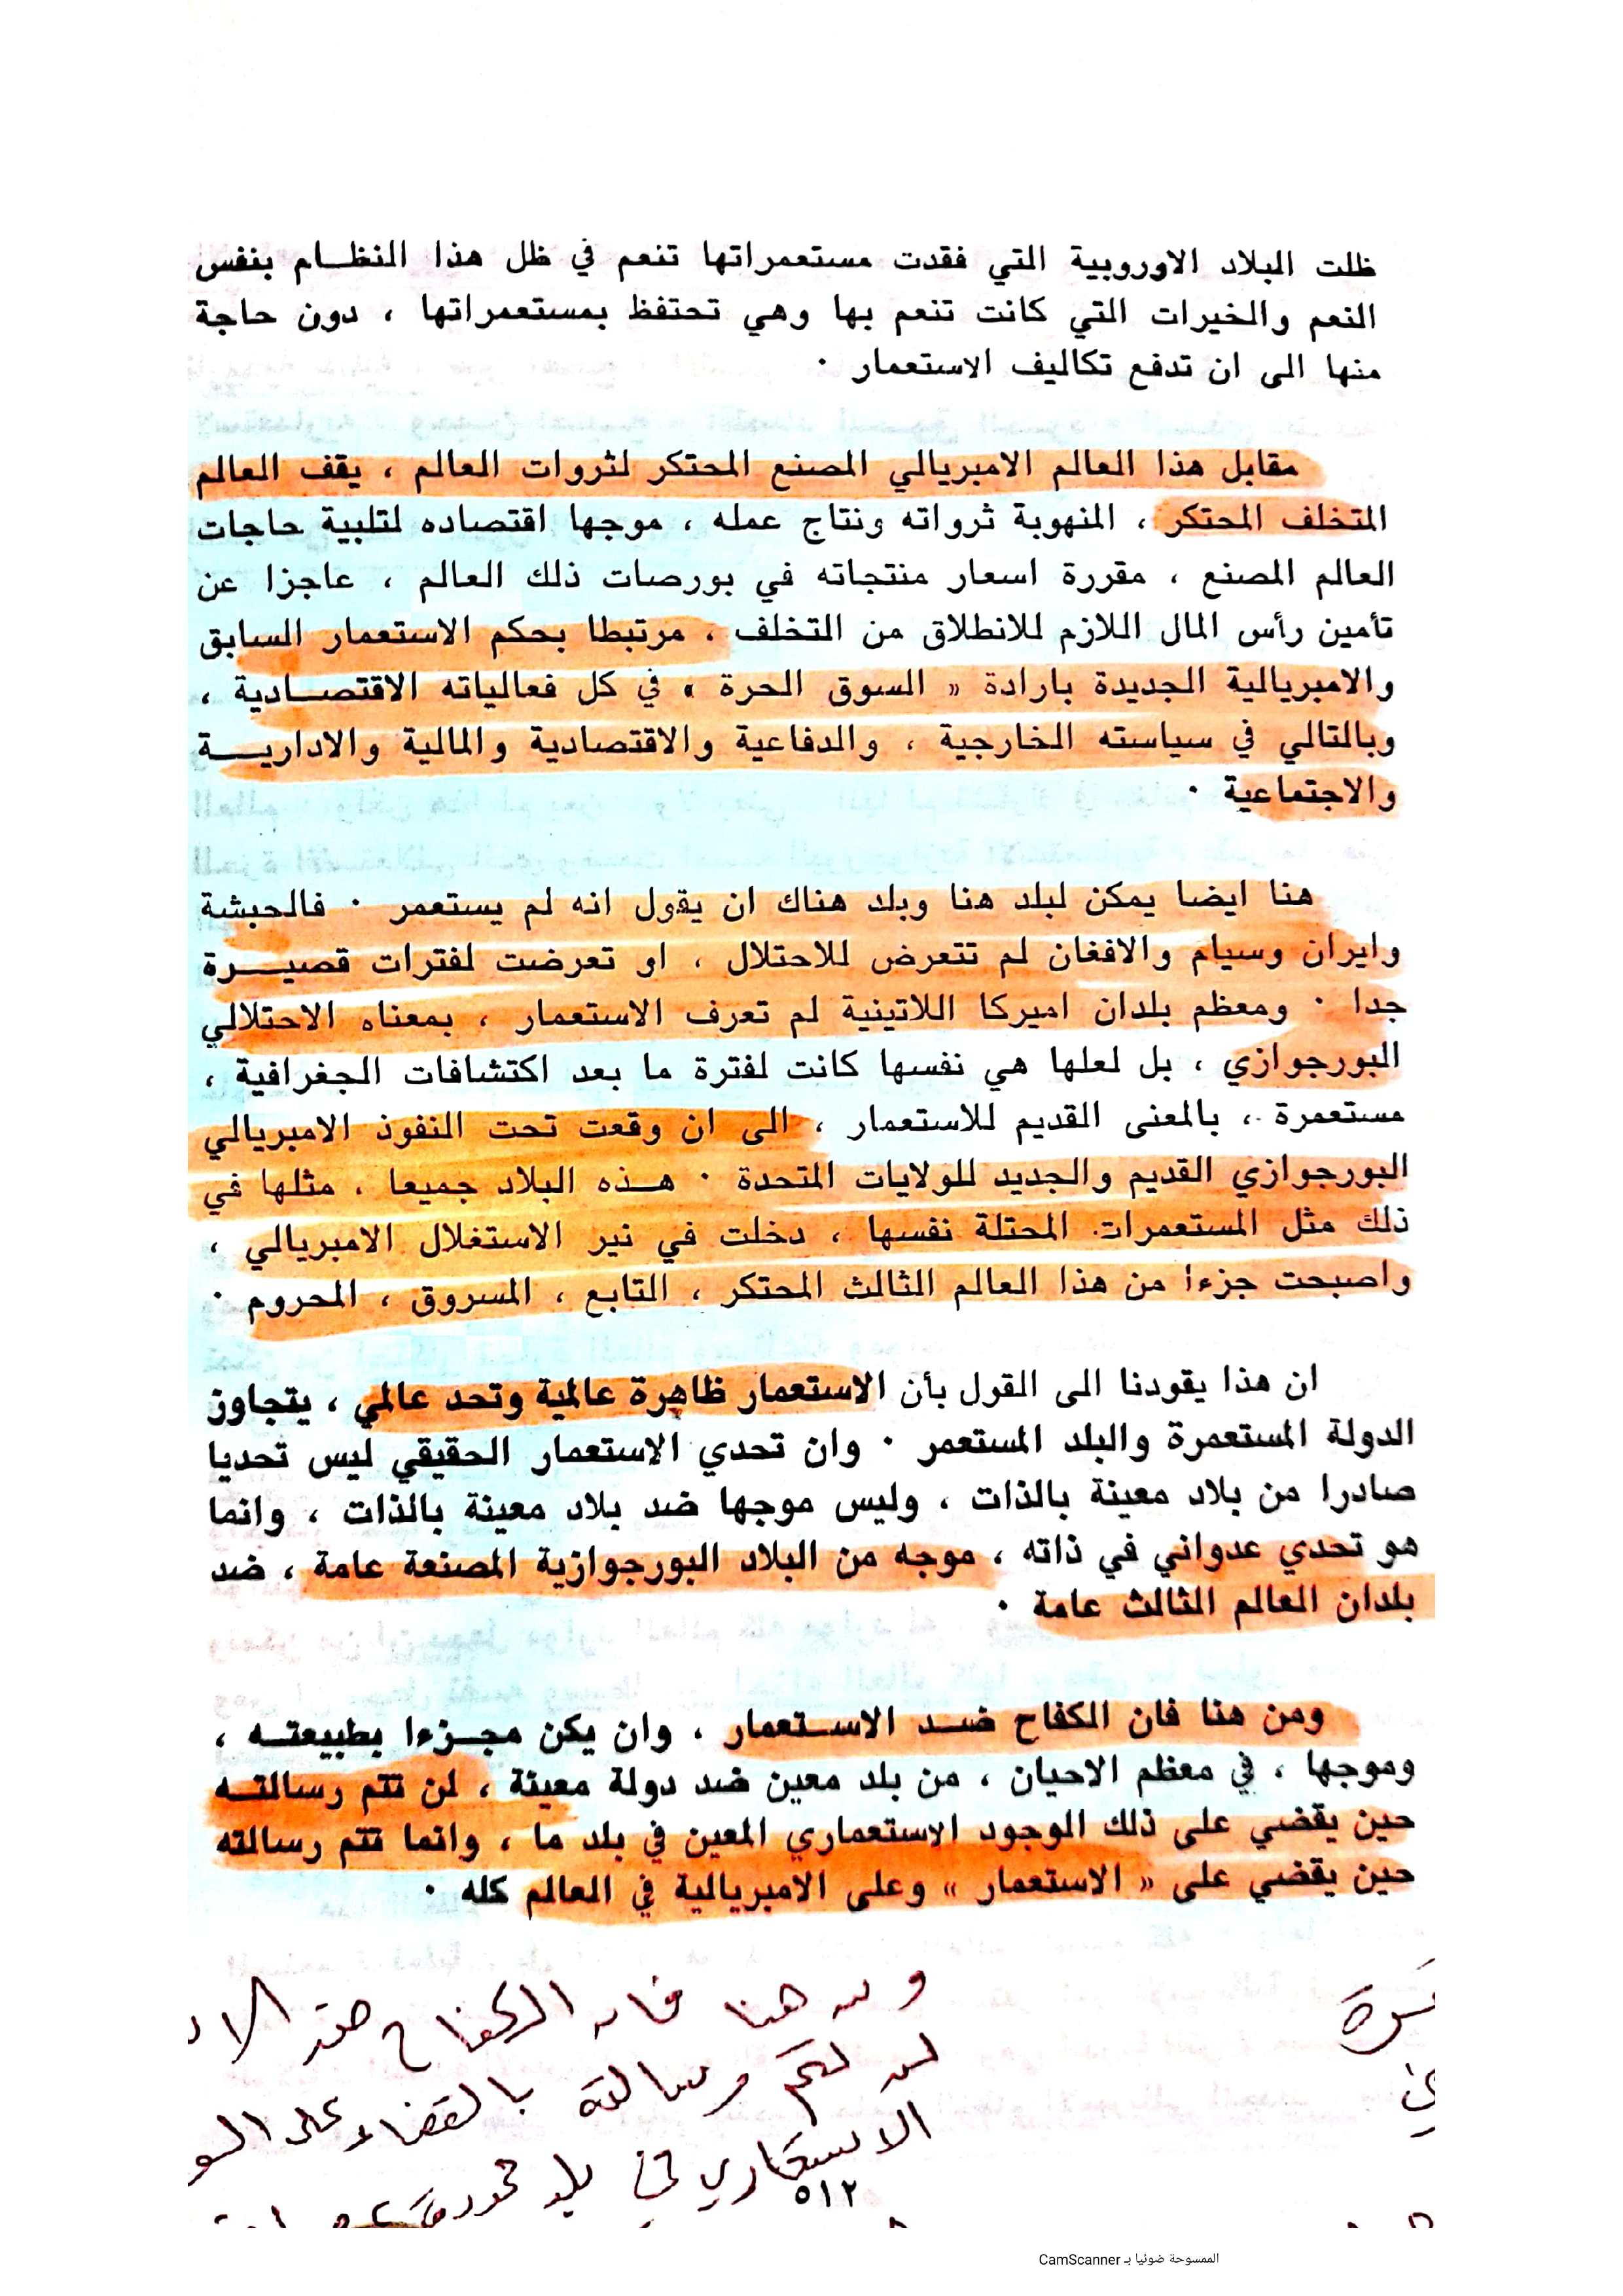 ظلت البلاد الاوروبية التي فقدت مستعمراتها تنعم في ظل هذا النظـام بنفس
النعم والخيرات التي كانت تنعم بها وهي تحتفظ بمستعمراتها ، دون حاجة
منها الى ان تدفع تكاليف الاستعمار ٠
مقابل هذا العالم الامبريالي المصنع المحتكر لثروات العالم ، يقف العالم
المتخلف المحتكر ، المنهوبة ثرواته ونتاج عمله ، موجها اقتصاده لتلبية حاجات
العالم المصنع ، مقررة اسعار منتجاته في بورصات ذلك العالم ، عاجزا عن
تأمين رأس المال اللازم للانطلاق من التخلف ، مرتبطا بحكم الاستعمار السابق
والامبريالية الجديدة بارادة « السوق الحرة » في كل فعالياته الاقتصـادية ،
وبالتالي في سياسته الخارجية ، والدفاعية والاقتصادية والمالية والاداريـــة
والاجتماعية ٠
هنا ايضا يمكن لبلد هنا وبلد هناك ان يقول انه لم يستعمر ٠ فالحبشة
وايران وسيام والافغان لم تتعرض للاحتلال ، او تعرضت لفترات قصيـــرة
جدا ٠ ومعظم بلدان اميركا اللاتينية لم تعرف الاستعمار ، بمعناه الاحتلالي
البورجوازي ، بل لعلها هي نفسها كانت لفترة ما بعد اكتشافات الجغرافية ،
مستعمرة ، بالمعنى القديم للاستعمار ، الى ان وقعت تحت النفوذ الامبريالي
البورجوازي القديم والجديد للولايات المتحدة ٠ هـذه البلاد جميعا ، مثلها في
ذلك مثل المستعمرات المحتلة نفسها ، دخلت في نير الاستغلال الامبريالي ،
واصبحت جزءا من هذا العالم الثالث المحتكر ، التابع ، المسروق ، المحروم ٠
ان هذا يقودنا الى القول بأن الاستعمار ظاهرة عالمية وتحد عالمي ، يتجاوز
الدولة المستعمرة والبلد المستعمر ٠ وان تحدي الاستعمار الحقيقي ليس تحديا
صادرا من بلاد معينة بالذات ، وليس موجها ضد بلاد معينة بالذات ، وانما
هو تحدي عدواني في ذاته ، موجه من البلاد البورجوازية المصنعة عامة ، ضد
بلدان العالم الثالث عامة ٠
ومن هنا فان الكفاح ضـد الاسـتعمار ، وان يكن مجـزءا بطبيعتـه ،
وموجها ، في معظم الاحيان ، من بلد معين ضد دولة معينة ، لن تتم رسالتـه
حين يقضي على ذلك الوجود الاستعماري المعين في بلد ما ، وانما تتم رسالته
حين يقضي على « الاستعمار » وعلى الامبريالية في العالم كله ٠
ومن هنا فان الكفاح ضد الا
لن تتم رسالته بالقضاء على الو
الاستعماري في بلد
٥١٢
الممسوحة ضوئيا بـ CamScanner